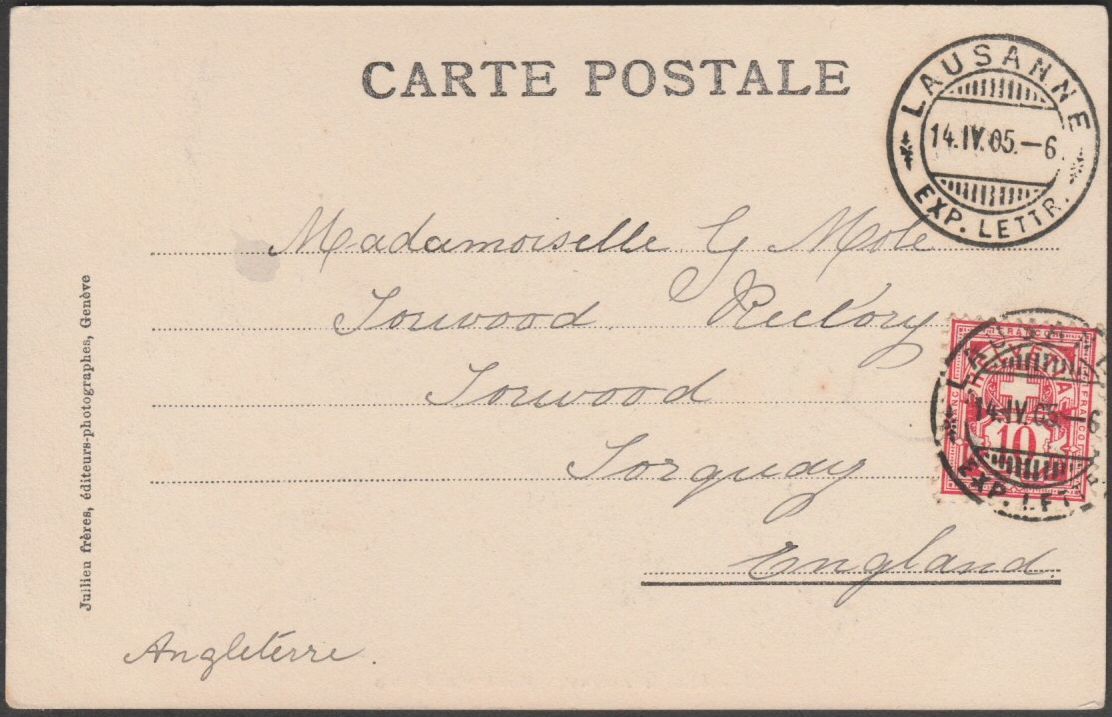 CARTE POSTALE
LAUSANNE
14.IV.05.—6
EXP. LETTR.
Madamoiselle G Mole
Torwood Rectory
Torwood
Torquay
England.
Angletérre.
FRANCO
HELVETIA
10
14.IV.05.—6
EXP. LET
Jullien frères, éditeurs-photographes, Genève